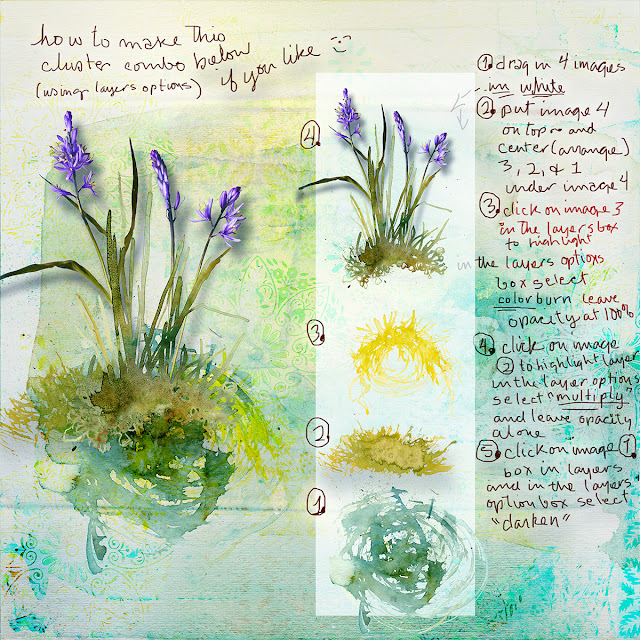 how to make this
cluster combo below
(using layers options) if you like
4.
3.
2.
1.
1. drag in 4 images
in white
2. put image 4
on top and
center (arrange)
3, 2, & 1
under image 4
3. click on image 3
in the layers box
to highlight
in the layers options
box select
colorburn leave
opacity at 100%
4. click on image
2 to highlight layer
in the layer options
select "multiply"
and leave opacity
alone
5. click on image 1.
box in layers
and in the layers
option box select
"darken"